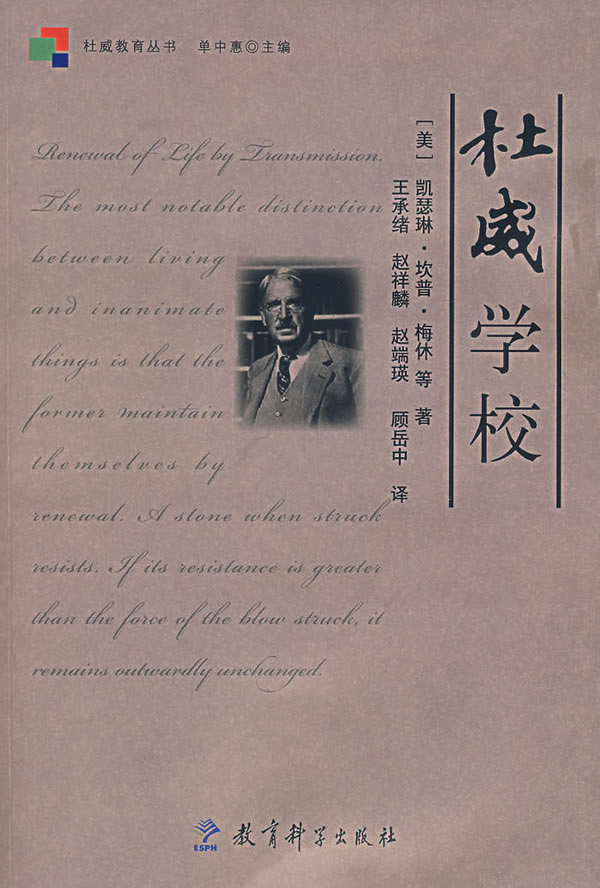 杜威教育丛书 单中惠◎主编
杜威学校
[美] 凯瑟琳·坎普·梅休 等 著
王承绪 赵祥麟 赵端瑛 顾岳中 译
Renewal of Life by Transmission.
The most notable distinction
between living
and inanimate
things is that the
former maintain
themselves by
renewal. A stone when struck
resists. If its resistance is greater
than the force of the blow struck, it
remains outwardly unchanged.
ESPH
教育科学出版社